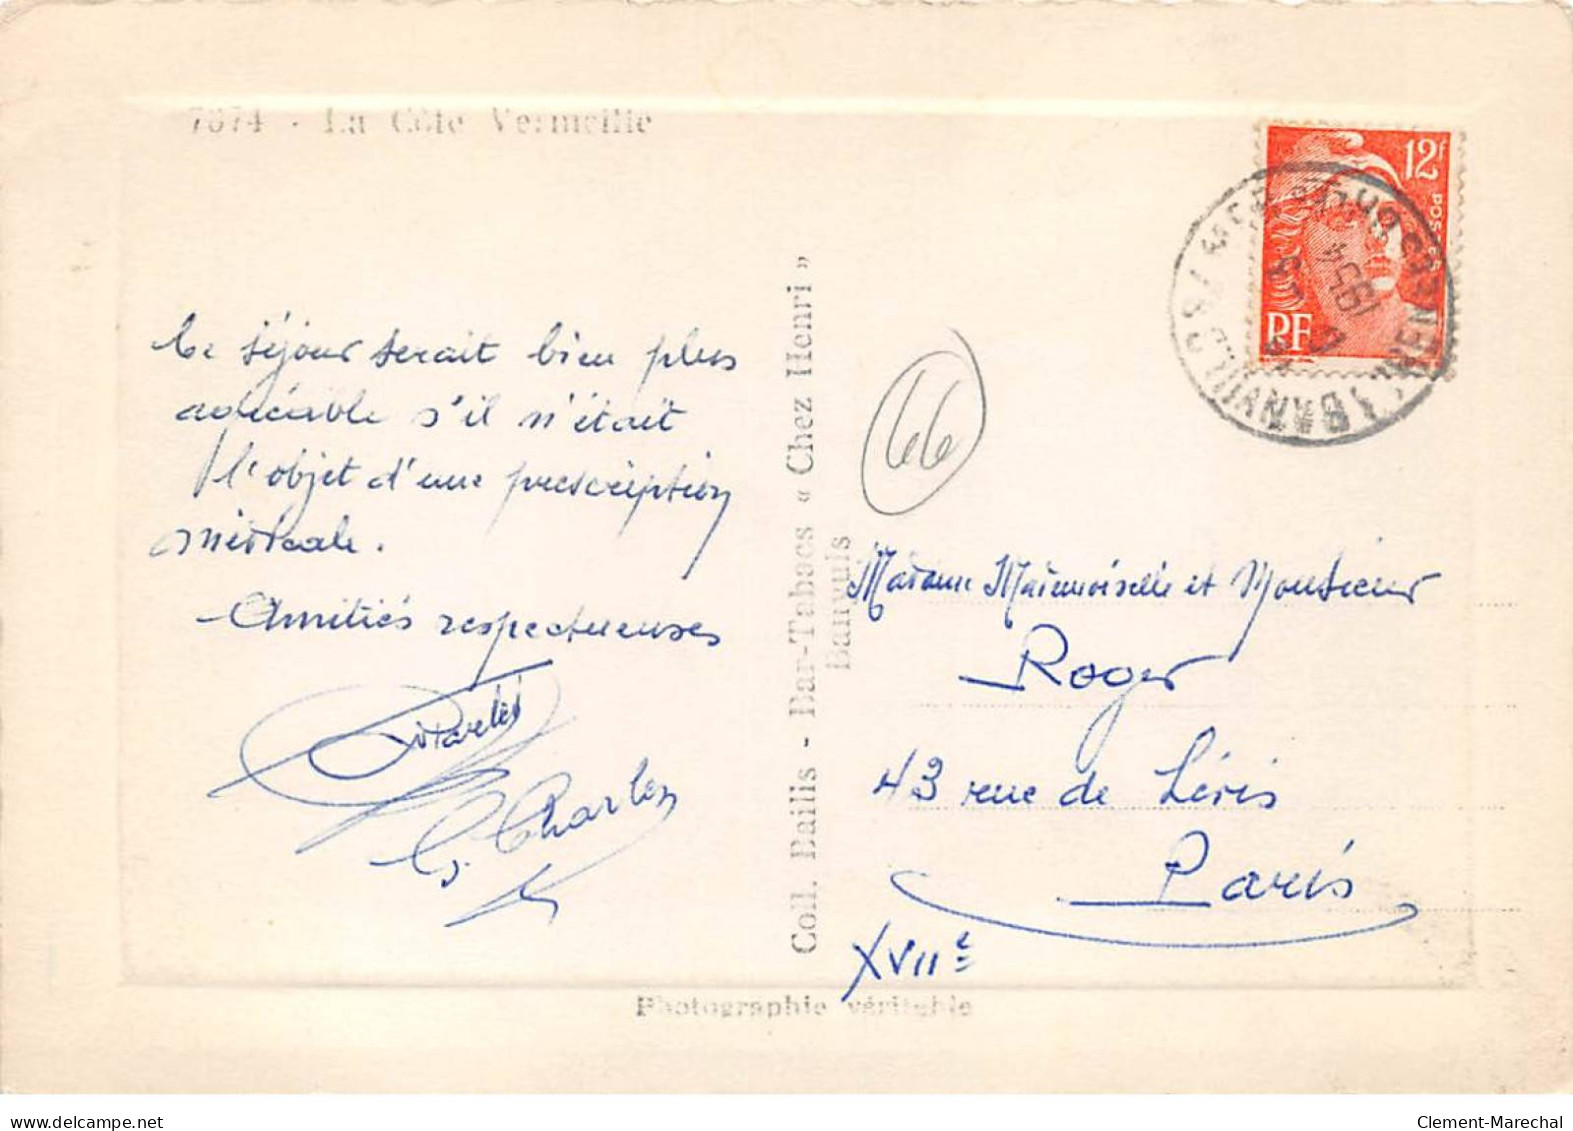 7874 - La Côte Vermeille
Ce séjour serait bien plus
agréable s'il n'était
l'objet d'une prescription
médicale.
Amitiés respectueuses
Charles
Coll. Bailis - Bar-Tabacs « Chez Henri »
Banyuls
66
12f
POSTES
RF
1954
BANYULS
Madame Mademoiselle et Monsieur
Roger
43 rue de Lévis
Paris
XVIIe
Photographie véritable
www.delcampe.net
Clement-Marechal